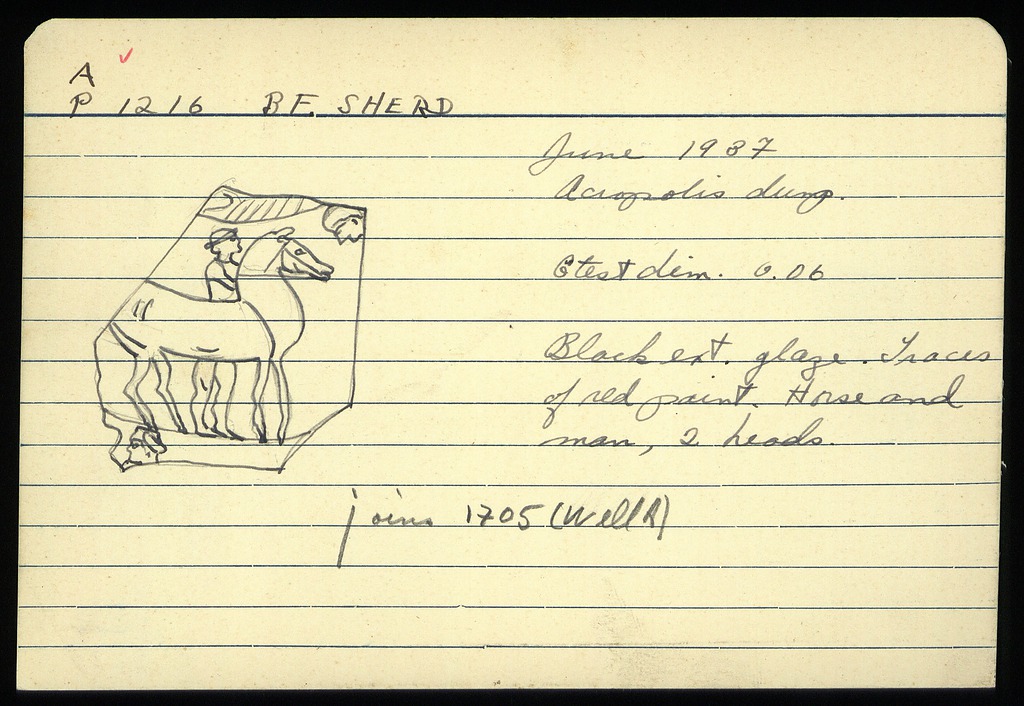 A
P 1216 B.F. SHERD
June 1937
Acropolis dump.
Gtest dim. 0.06
Black ext. glaze. Traces
of red paint. Horse and
man, 2 heads.
joins 1705 (Well A)